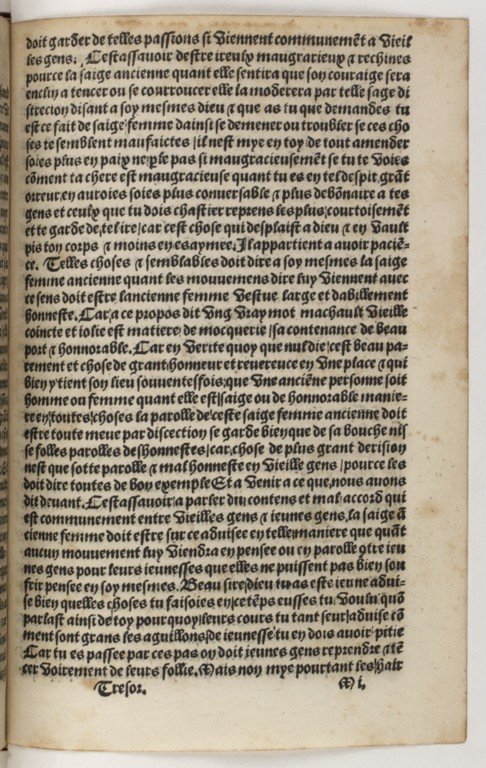 doit garder de telles passions si viennent communemẽt a vieil
les gens. Cestassavoir destre ireulx maugrarieux ⁊ rechines
pource la saige ancienne quant elle sentira que son couraige sera
enclin a tencer ou se courroucer elle la moderera par telle sage di
strecion disant a soy mesmes dieu ⁊ que as tu que demandes tu
est ce fait de saige femme dainsi se demener ou troubler se ces cho
ses te semblent maufaictes / il nest mye en toy de tout amender
soies plus en paix ne ple pas si maugracieusemẽt se tu te voies
cõment ta chere est maugracieuse quant tu es en tel despit, grãt
orreur en auroies soies plus conversable ⁊ plus debõnaire a tes
gens et ceulx que tu dois chastier reprens les plus courtoisemẽt
et te garde de tel ire / car cest chose qui desplaist a dieu ⁊ en vault
pis ton corps ⁊ moins en es aymee. Il appartient a avoir paciẽ=
ce. Telles choses ⁊ semblables doit dire a soy mesmes la saige
femme ancienne quant les mouuemens dire luy viennent avec
ce sens doit estre lancienne femme vestue large et dabillement
honneste. Car a ce propos dit vng vray mot machault vieille
coincte et iolie est matiere de mocquerie / sa contenance de beau
port ⁊ honnorable. Car en verite quoy que nul die / cest beau pa=
rement et chose de grant honneur et reuerence en vne place ⁊ qui
bien y tient son lieu souuentesfois / que vne anciẽne personne soit
homme ou femme quant elle est saige ou de honnorable manie=
re en toutes choses la parolle de ceste saige femme ancienne doit
estre toute meue par discection se garde bien que de sa bouche nis
se folles parolles deshonnestes / car chose de plus grant derision
nest que sotte parolle ⁊ mal honneste en vieille gens / pource les
doit dire toutes de bon exemple Et a venir a ce que nous avons
dit devant. Cestassavoir a parler du contens et mal accord qui
est communement entre vieilles gens ⁊ ieunes gens. la saige ã
cienne femme doit estre sur ce aduisee en telle maniere que quãt
aucun mouuement luy viendra en pensee ou en parolle cõtre ieu
nes gens pour leurs ieunesses que elles ne puissent pas bien sou
frir pensee en soy mesmes. Beau sire dieu tu as este ieune aduī=
se bien quelles choses tu faisoies en ce tẽps eusses tu voulu quõ
parlast ainsi de toy pourquoy leurs cours tu tant seur aduise cõ
ment sont grans les aguillons de ieunesse tu en dois avoir pitie
Car tu es passee par ces pas on doit ieunes gens reprendre ⁊ tẽ
cer voirement de leurs follie. Mais non mye pourtant les hair
Tresor. M i.